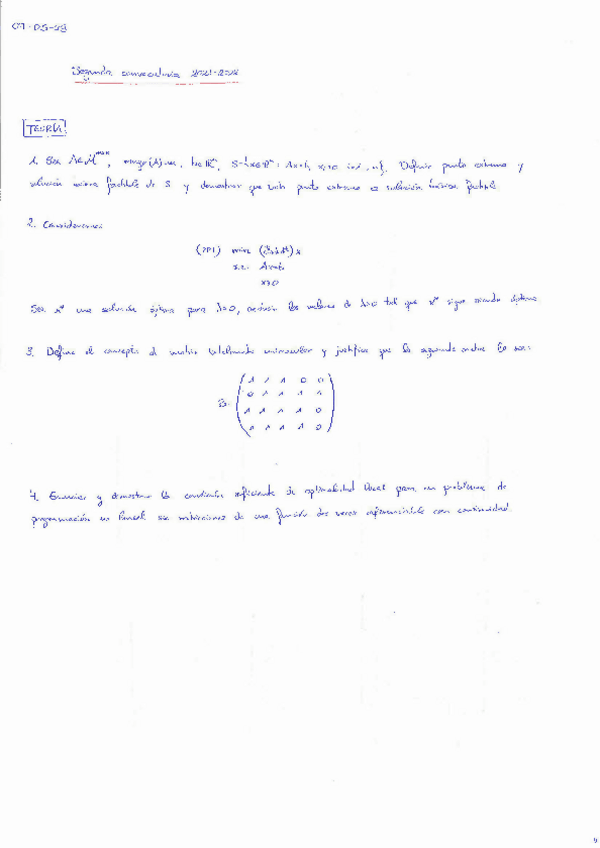 Segunda convocatoria 2021-2022
TEORÍA
1. Sea A∈M^{m×n}, rango(A)=m, b∈ℝ^m, S={x∈ℝ^n: Ax=b, x_i≥0 i=1,..,n}. Definir punto extremo y
solución básica factible de S y demostrar que todo punto extremo es solución básica factible.
2. Consideremos
(PPL) min x
s.a. Ax=b
x≥0
Sea x* una solución óptima para λ=0, los valores de λ≥0 tal que x* sigue siendo óptima
3. Define el concepto de matriz totalmente unimodular y justifica que la siguiente matriz lo sea:
B=
1 1 1 0 0
0 1 1 1 1
1 1 1 1 0
1 1 1 0
4. Enunciar y demostrar la condición suficiente de optimalidad local para un problema de
programación no lineal sin restricciones de una función dos veces diferenciable con continuidad.
9